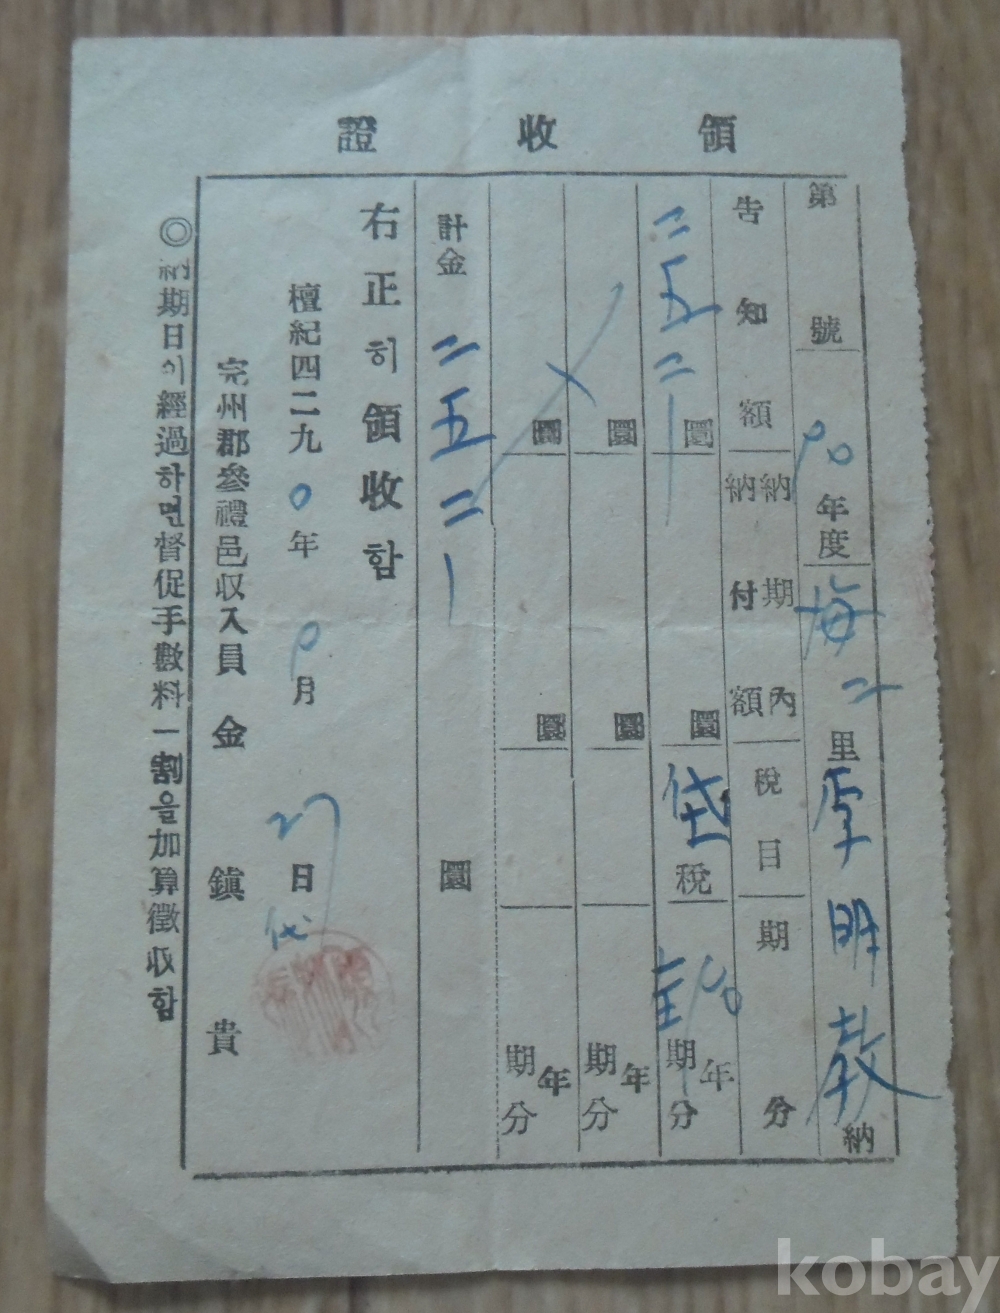 領收證
第 號 90年度 海二里 李明教 納
告知額 納期內納付額 稅目 期分
二五二一圜 圜 垈稅 90年 期分
圜 圜 年 期分
圜 圜 年 期分
計金 二五二一 圜
右正히領收함
檀紀四二九0年 9月 27日
完州郡參禮邑收入員 金鎭貴 代
◎納期日이經過하면督促手數料一割을加算徵收함
kobay